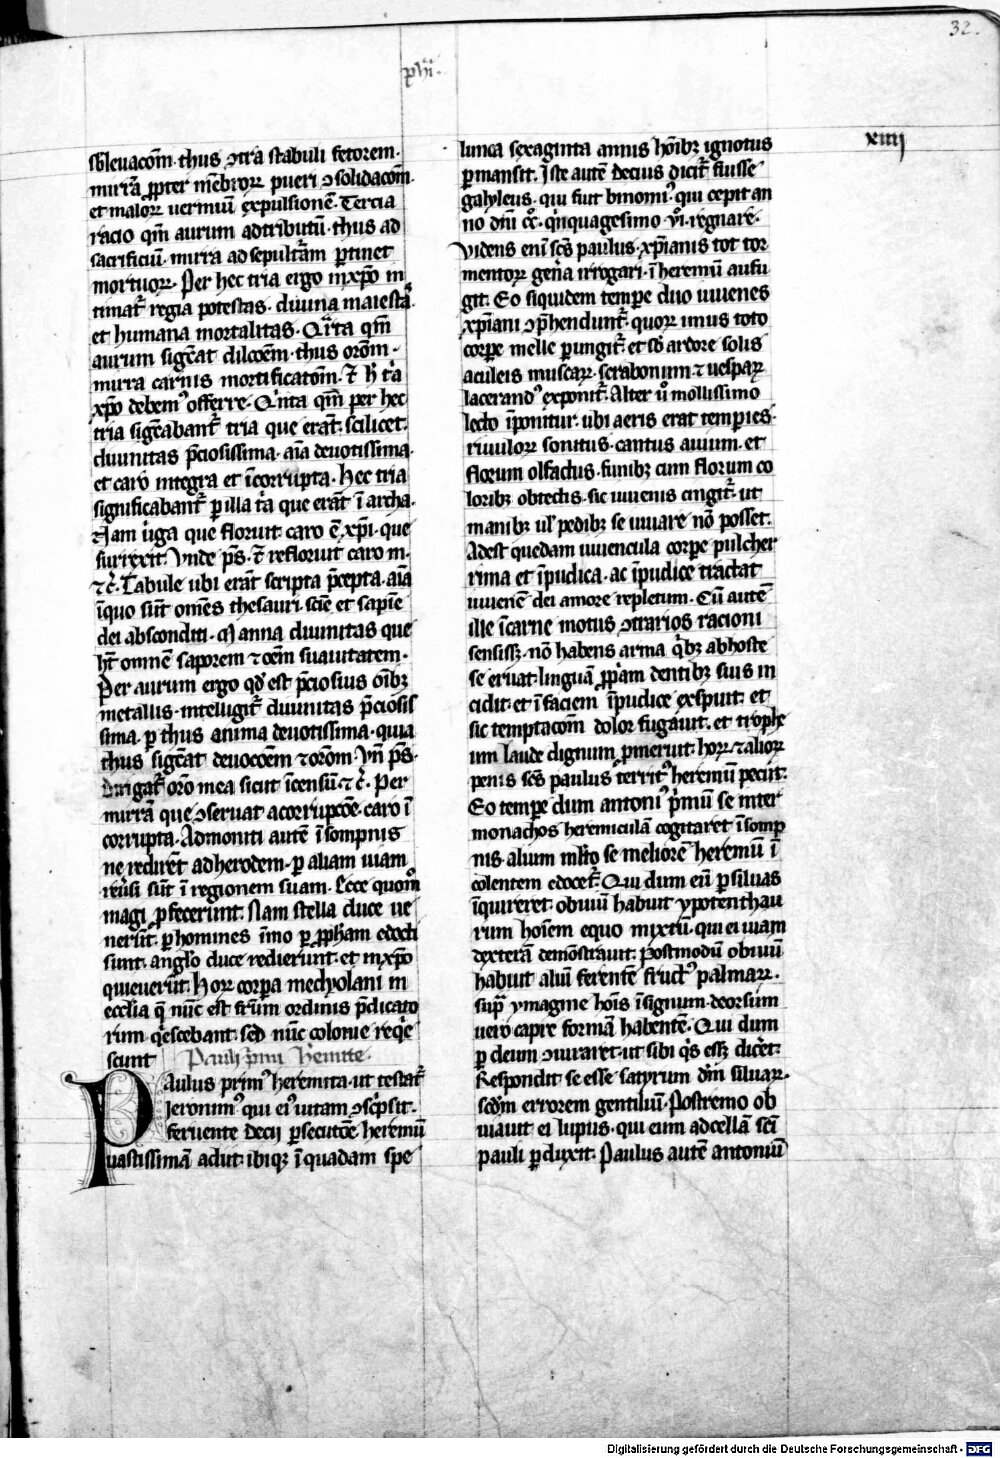 32.
phi.
xiiij
sbleuacōm. thus ɔtra stabuli fetorem.
mirrā ꝓpter mēbroꝝ pueri ɔsolidacōm.
et maloꝝ uermiū expulsionē. Tercia
racio qm̄ aurum ad tributū. thus ad
sacrificiū. mirra ad sepulturam ꝑtinet
mortuoꝝ. Per hec tria ergo in xp̄o in
timat᷑ regia potestas. diuina maiestas
et humana mortalitas. Qͣrta qm̄
aurum sigͨeat dilcōem. thus orōm.
mirra carnis mortificatōm. ⁊ h̄ tͥa
xp̄o debemꝰ offerre. Qͥnta qm̄ per hec
tria sigͨeabant᷑ tria que erāt. scilicet.
diuinitas p̄ciosissima. aīa deuotissima.
et caro integra et īcorrupta. Hec tria
significabant᷑ ꝑ illa tͥa que erāt ī archa.
Nam uͥga que floruit caro ē xp̄i. que
surrexit. Vnde ps̄. ⁊ refloruit caro m.
⁊c̄. Tabule ubi erāt scripta p̄cepta. aīa
ī quo sūt om̄es thesauri. scīe et sapīe
dei absconditi. Manna diuinitas que
h̄t omnē saporem ⁊ oēm suauitatem.
Per aurum ergo qd̓ est p̄ciosius oībꝫ
metallis. intelligit᷑ diuinitas p̄ciosis
sima. ꝑ thus anima deuotissima. quia
thus sigͨeat deuocōem ⁊ orōm. Vn̄ ps̄.
Dirigat᷑ orō mea sicut īcensū ⁊c̄. Per
mirrā que ɔseruat a corrupcōe. caro ī
corrupta. Admoniti autē ī sompnis
ne redirēt ad herodem. ꝑ aliam uiam
reuͥsi sūt ī regionem suam. Ecce quom̄
magi ꝓfecerunt. Nam stella duce ue
nerūt. ꝑ homines īmo ꝑ ꝓph̄am edocti
sunt. anglo duce redierunt. et in xp̄o
quieuerūt. Hoꝝ corpa mediolani in
ecclia q̄ nūc est frūm ordinis p̄dicato
rum qͥescebant. sed nūc colonie reqͥe
scunt Pauli pͥmi h̓emite.
Paulus primꝰ heremita. ut testat᷑
ieronimꝰ qui eiꝰ uitam ɔscͥpsit.
feruente decij ꝑsecutōe. heremū
uastissimā adiit. ibiqꝫ ī quadam spe
lunca sexaginta annis hoībꝫ ignotus
ꝑmansit. Iste autē decius dicit᷑ fuisse
galyleus. qui fuit binomiꝰ. qui cepit an
no dn̄i cͦcͦ. qͥnquagesimo viͦ. regnare.
Videns enī scs̄ paulus. xp̄ianis tot tor
mentoꝝ genͣa irrogari. ī heremū aufu
git. Eo siquidem tempe duo iuuenes
xp̄iani ɔp̄hendunt᷑. quoꝝ unus toto
corpe melle ꝑungit᷑. et sb̓ ardore solis
aculeis muscaꝝ. scrabonum ⁊ uespaꝝ
lacerandꝰ exponit᷑. Alter uͦ mollissimo
lecto īponitur. ubi aeris erat temꝑies.
riuuloꝝ sonitus. cantus auium. et
florum olfactus. funibꝫ cum florum co
loribꝫ obtectis. sic iuuenis cingit᷑. ut
manibꝫ ul̓ pedibꝫ se iuuare nō posset.
Adest quedam iuuencula corpe pulcher
rima et īpudica. ac īpudice tractat
iuuenē dei amore repletum. Cū autē
ille ī carne motus ɔtrarios racioni
sensissꝫ. nō habens arma qͥbꝫ ab hoste
se eruat. linguā ꝓpͥam dentibꝫ suis in
cidit. et ī faciem īpudice exspuit. et
sic temptacōm dolor fugauit. et trophe
um laude dignum ꝓmeruit. hoꝝ ⁊ alioꝝ
penis scs̄ paulus territꝰ heremū peciit.
Eo tempe dum antoniꝰ pͥmū se inter
monachos heremiculā cogitaret. ī somp
nis. alium ml̓to se meliorē heremū ī
colentem edocet᷑. Qui dum eū ꝑ siluas
īquireret. obuiū habuit ypotenthau
rum hoīem equo mixtū. qui ei uiam
dexterā demōstrauit. Postmodū obuiū
habuit aliū ferentē fructꝰ palmaꝝ.
supͣ ymagine hoīs īsignum. deorsum
uero capre formā habentē. Qui dum
ꝑ deum ɔiuraret. ut sibi qͥs essꝫ dic̓et.
Respondit se esse satyrum dm̄ siluaꝝ.
scd̓m errorem gentiliū. Postremo ob
uiauit ei lupus. qui eum ad cellā scī
pauli ꝑduxit. Paulus autē antoniū
Digitalisierung gefördert durch die Deutsche Forschungsgemeinschaft - DFG